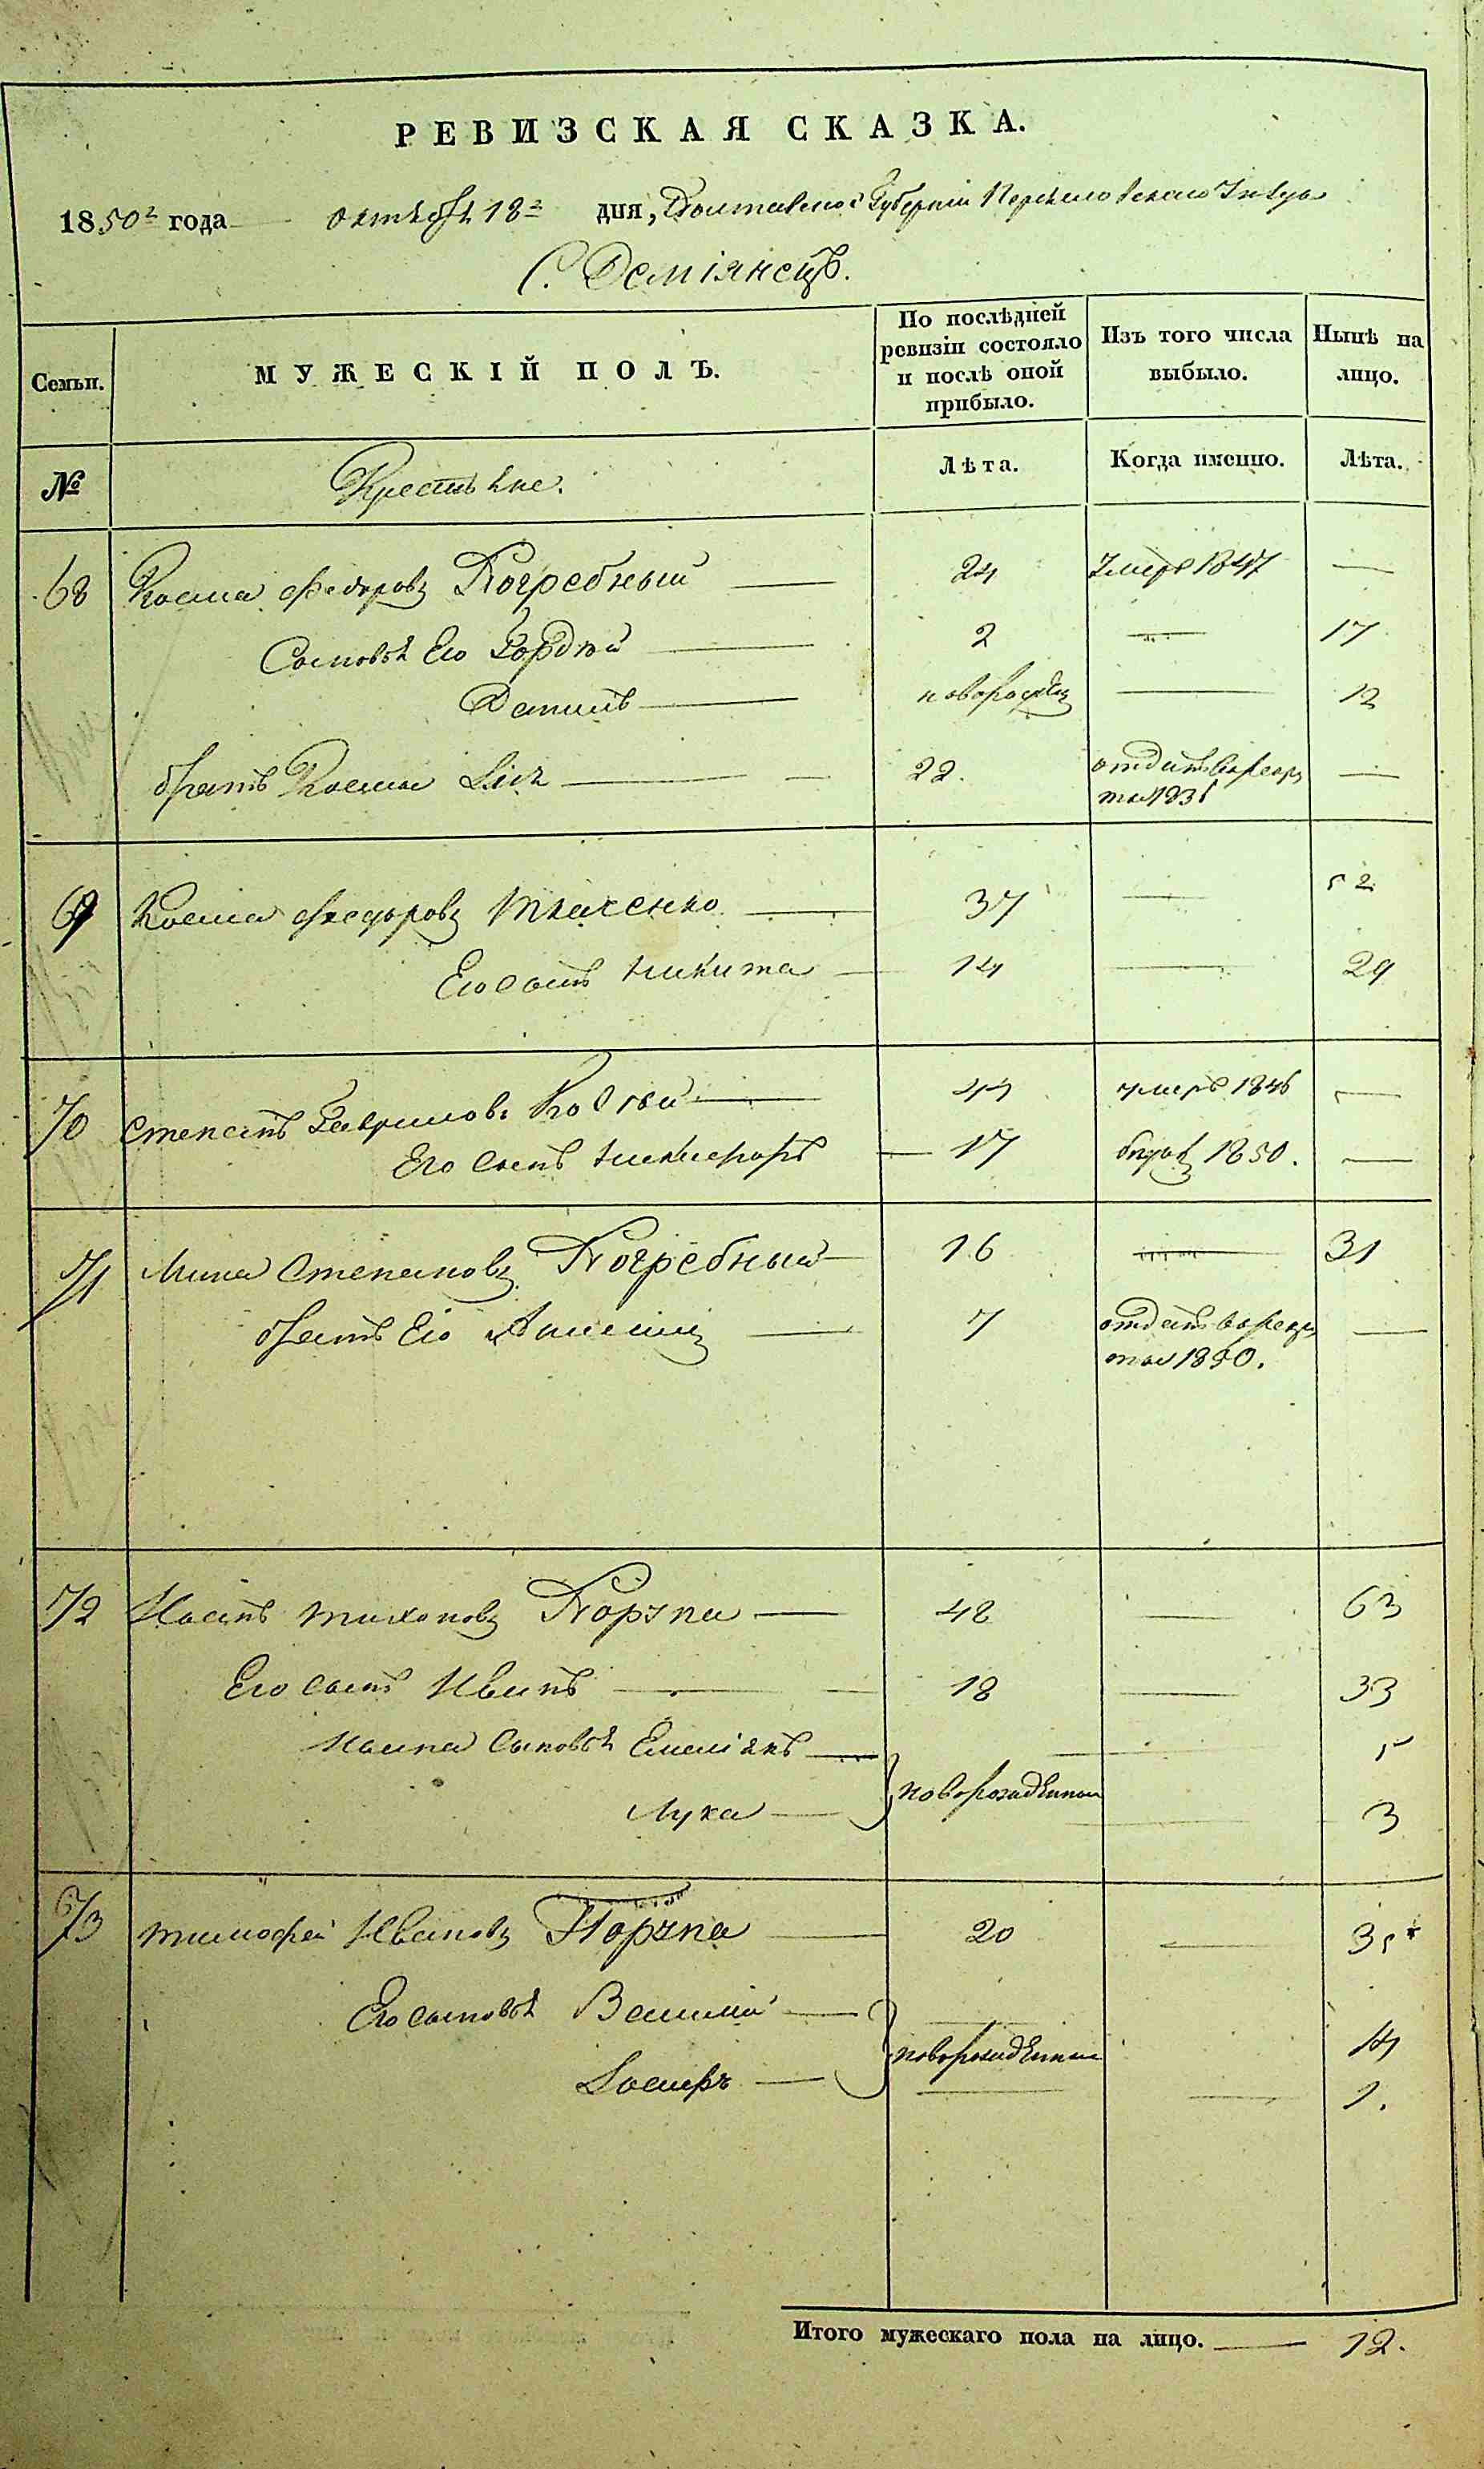 РЕВИЗСКАЯ СКАЗКА.
1850 года октября 18 дня, Полтавской Губернии Переяславского Уезда
С. Деміянецъ.
Семьи.
МУЖЕСКІЙ ПОЛЪ.
По послѣдней ревизіи состояло и послѣ оной прибыло.
Изъ того числа выбыло.
Нынѣ на лицо.
№
Крестьяне.
Лѣта.
Когда именно.
Лѣта.
68 Косма Федоровъ Погребный — 24 Умеръ 1847 —
Сыновья Его Гордѣй — 2 — 17
Данило — новорожден — 12
братъ Космы — 22. отданъ в рекру —
ты 183
69 Косма Федоровъ Ткаченко — 37 — 52
Его сынъ Никита — 14 — 29
70 Степанъ Гавриловъ — 44 умеръ 1846 —
Его сынъ Никифоръ — 17 1850. —
71 Мина Степановъ Погребный — 16 — 31
братъ Его — 7 отданъ в рекру —
ты 1850.
72 Иванъ Тихоновъ Порупа — 48 — 63
Его сынъ Иванъ — 18 — 33
Ивана Сыновья Емеліянъ — 5
Лука — новорожденныи 3
73 Тимофей Ивановъ Порупа — 20 — 35
Его сыновья Василій — 14
новорожденныи — 1.
Итого мужескаго пола на лицо. — 12.